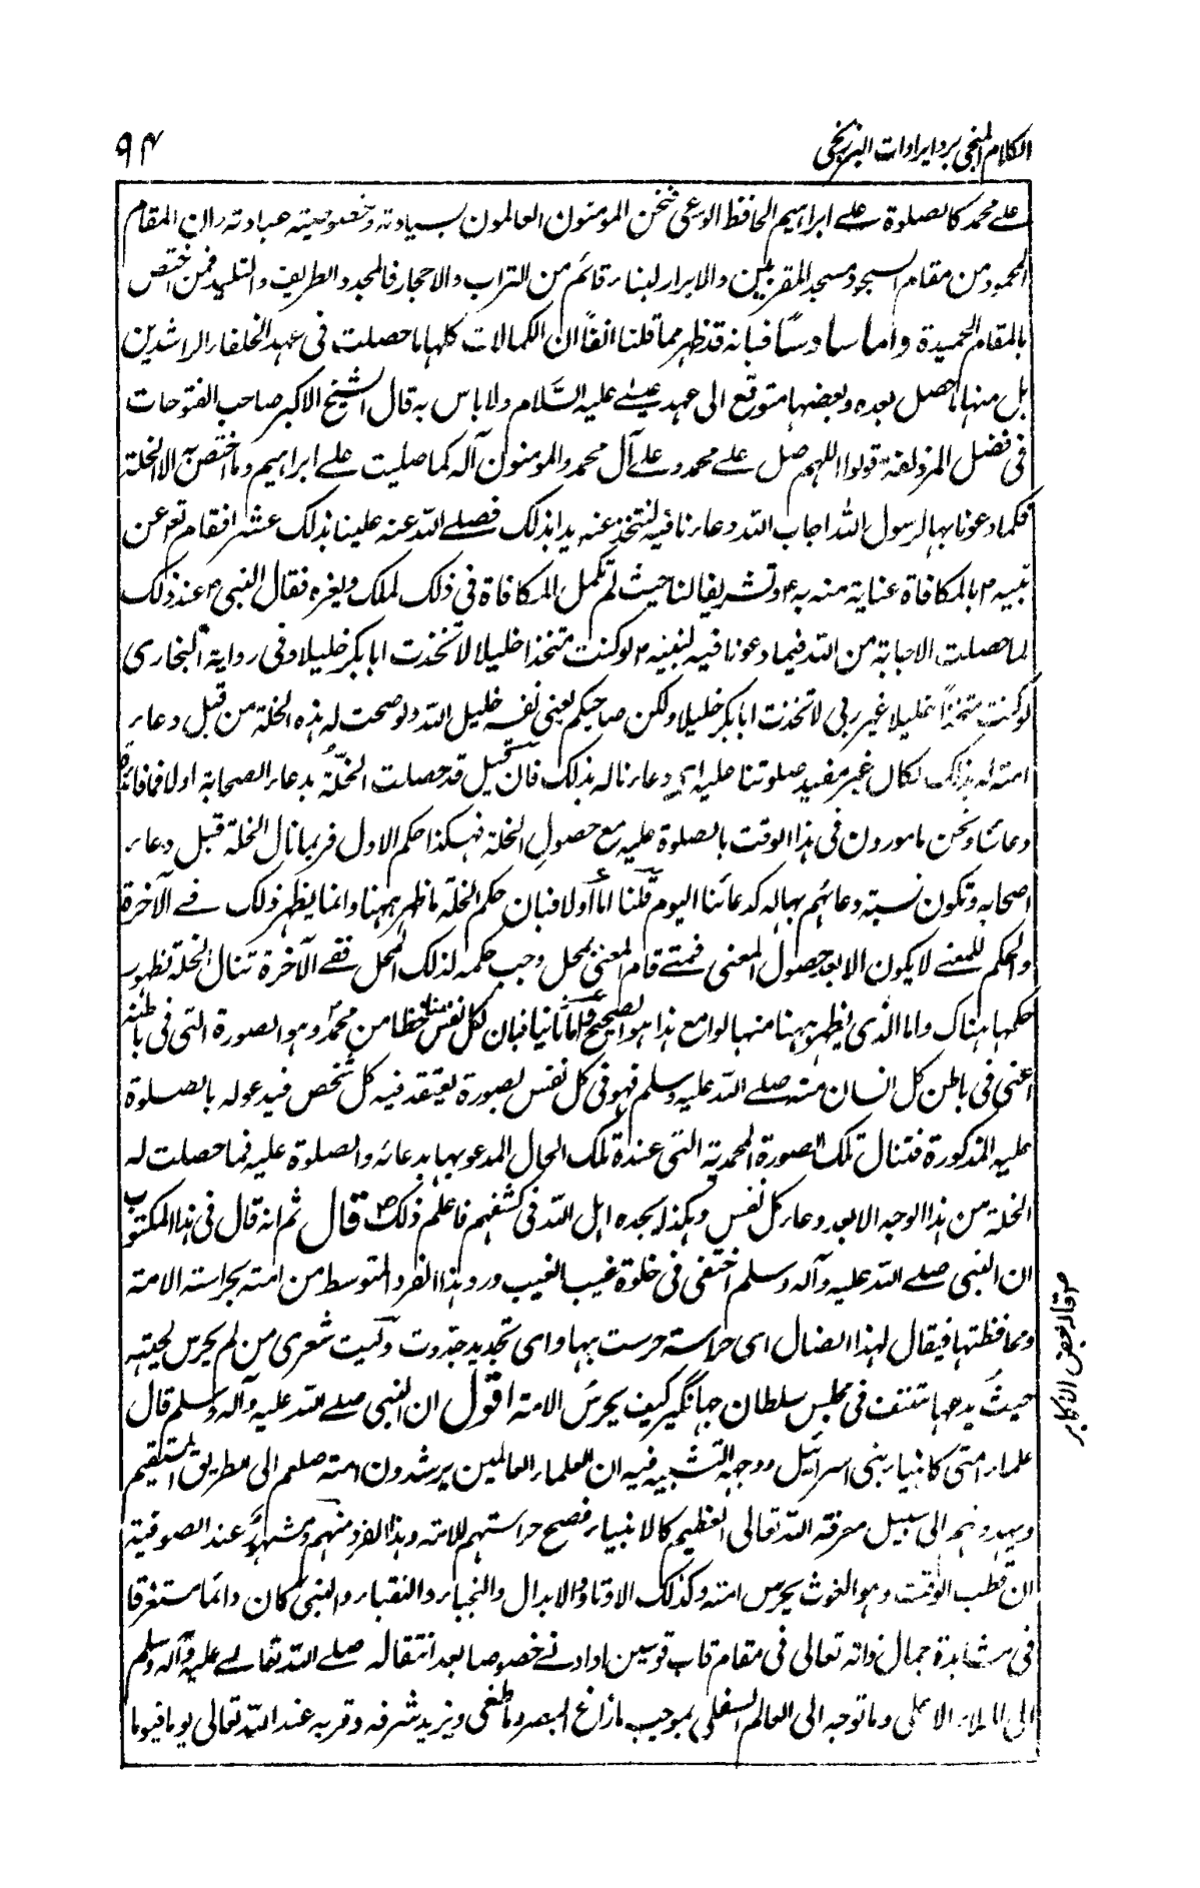 الكلام المنجي برد ايرادات البرزنجي
٩٤
على محمد كالصلوة على ابراهيم الحافظ الوعى فنحن المؤمنون العالمون بسيادته وخصوصيته عبادته وان المقام
المحمود من مقام السجود ومسجد المقربين والابرار لبناء قائم من التراب والاحجار فالمجد والطريف والتليد فمن اختص
بالمقام الحميدة واما سادسًا فبانه قد ظهر مما قلنا انفًا ان الكمالات كلها ما حصلت فى عهد الخلفاء الراشدين
بل منها ما حصل بعده وبعضها متوقع الى عهد عيسى عليه السّلام ولا باس به قال الشيخ الاكبر صاحب الفتوحات
فى فضل المزدلفة قولوا اللهم صل على محمد وعلى آل محمد والمومنون آله كما صليت على ابراهيم وما اختص به الا الخلة
فكما دعونا بها لرسول الله اجاب الله دعاءنا فيه لنتخذ عنه يدا بذلك فصلى الله عنه علينا بذلك عشرا فقام تعم عن
نبيه ٣ بالمكافاة عناية منه به ٣ وتشريفا لنا حيث لم تكمل المكافاة فى ذلك لملك وبغيره فقال النبى ٣ عند ذلك
لما حصلت الاجابة من الله فيما دعونا فيه لنبيه ٣ لو كنت متخذا خليلا لاتخذت ابا بكر خليلا وفى رواية البخارى
لو كنت متخذاً خليلا غير ربى لاتخذت ابا بكر خليلا ولكن صاحبكم يعنى نفسه خليل الله ولو صحت له هذه الخلة من قبل دعاء
امته له بذلك لكان غير مفيد صلوتنا عليه اى دعاءنا له بذلك فان قيل قد حصلت الخلّة بدعاء الصحابة اولا فما فائدة
دعائنا ونحن مامورون فى هذا الوقت بالصلوة عليه مع حصول الخلة فهكذا حكم الاول فربما نال الخلة قبل دعاء
اصحابه وتكون نسبة دعائهم بها له كدعائنا اليوم قلنا اما اولا فبان حكم الخلّة ما ظهر ههنا وانما يظهر ذلك فى الآخرة
والحكم للمعنى لا يكون الا بعد حصول المعنى فمتى قام المعنى بمحل وجب حكمه لذلك المحل ففى الآخرة تنال الخلة لظهور
حكمها هناك واما الذى يظهر ههنا منها لوامع هذا هو الصحيح واما ثانيا فبان لكل نفس منا حظا من محمد وهو الصورة التى فى باطنه
اعنى فى باطن كل انسان منه صلى الله عليه وسلم فهو فى كل نفس بصورة يعتقد فيه كل شخص فيدعو له بالصلوة
عليه المذكورة فتنال تلك الصورة المحمدية التى عنده تلك الحال المدعو بها بدعائه والصلوة عليه فما حصلت له
الخلة من هذا الوجه الا بعد دعاء كل نفس وهكذا يجده اهل الله فى كشفهم فاعلم ذلك قال ثم انه قال فى هذا المكتوب
ان النبى صلى الله عليه وآله وسلم اختفى فى خلوة غيب الغيب ورد هذا الفرد المتوسط من امته بحراسة الامة
ومحافظتها فيقال لهذا الضال اى حراسة حرست بها واى تجديد جدّدت وليت شعرى من لم يحرس لحيته
حيث يدعها تنتف فى مجلس سلطان جهانگير كيف يحرس الامة اقول ان النبى صلى الله عليه وآله وسلم قال
علماء امتى كانبياء بنى اسرائيل ووجه التشبيه فيه ان العلماء العالمين يرشدون امته صلعم الى الطريق المستقيم
ويهدونهم الى سبيل معرفة الله تعالى العظيم كالانبياء فصح حراستهم للامة وهذا الفرد منهم وشهر عند الصوفية
ان قطب الوقت وهو الغوث يحرس امته وكذلك الاوتاد والابدال والنجباء والنقباء والنبى كان دائما مستغرقا
فى مشاهدة جمال ذاته تعالى فى مقام قاب قوسين او ادنى خصوصا بعد انتقاله صلى الله تعالى عليه وآله وسلم
الى الملاء الاعلى وما توجه الى العالم السفلى بموجب ما زاغ البصر وما طغى ويزيد شرفه وقربه عند الله تعالى يوما فيوما
قاله بعض الاكابر